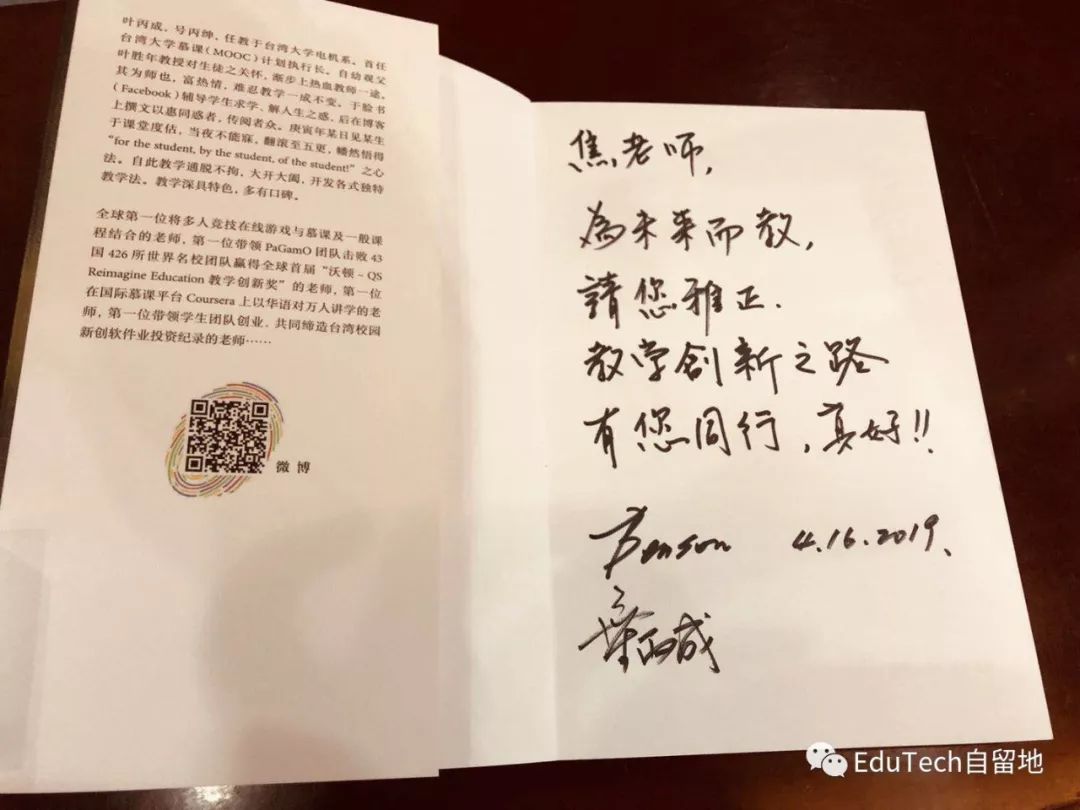 叶丙成，号丙绅，任教于台湾大学电机系。首任
台湾大学慕课（MOOC）计划执行长。自幼观父
叶胜年教授对生徒之关怀，渐步上热血教师一途。
其为师也，富热情，难忍教学一成不变。于脸书
（Facebook）辅导学生求学、解人生之惑，后在博客
上撰文以惠同惑者，传阅者众。庚寅年某日见某生
于课堂度估，当夜不能寐，翻滚至五更，幡然悟得
“for the student, by the student, of the student!”之心
法。自此教学通脱不拘，大开大阖，开发各式独特
教学法。教学深具特色，多有口碑。
全球第一位将多人竞技在线游戏与慕课及一般课
程结合的老师，第一位带领 PaGamO 团队击败 43
国 426 所世界名校团队赢得全球首届“沃顿-QS
Reimagine Education 教学创新奖”的老师，第一位
在国际慕课平台 Coursera 上以华语对万人讲学的老
师，第一位带领学生团队创业、共同缔造台湾校园
新创软件业投资纪录的老师……
微博
焦老师，
為未来而教，
請您雅正.
教学創新之路
有您同行，真好!!
Benson 4.16.2019、
葉丙成
EduTech自留地